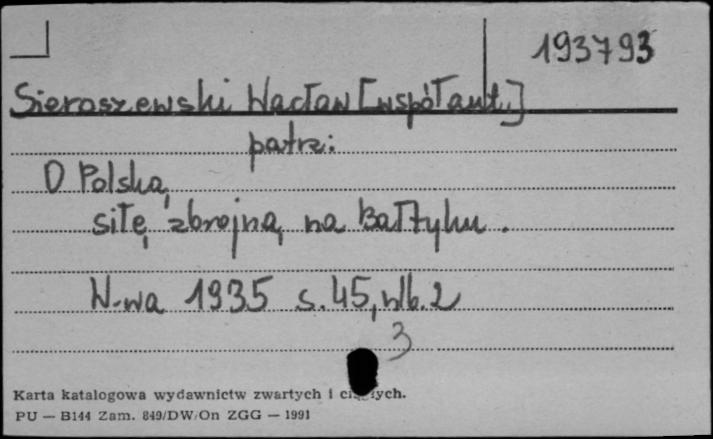 193793
Sieroszewski Wacław [współaut.]
patrz:
O Polską
siłę zbrojną na Bałtyku.
W-wa 1935 s.45, nlb.2
3
Karta katalogowa wydawnictw zwartych i ciągłych.
PU — B144 Zam. 849/DW/On ZGG — 1991